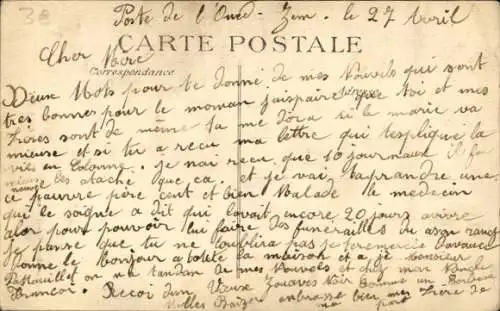 30
Poste de l'Oued-Zem. le 27 Avril
CARTE POSTALE
Cher Mère
Correspondance
Deux Mots pour te donné de mes Nouvels qui sont
tres bonnes pour le moman jaispaire que toi et mes
Frères sont de même ta me dira si le marie va
mieuse et si tu a recu ma lettre qui tesplique la
en Colonne. je nai recu que 10 journaux il
les atache que ca. et je vais taprandre une
ce pauvre père cent et bien Malade le medecin
que le soigne a dit qui lavait encore 20 jours avivre
alor pour pouvoir lui faire des funerailles du
je panse que tu ne loublira pas je teremercie davance
donne le Bonjour a toute la maison et a Monsieur
on na tandan de mes Nouvels et chez mon Oncle
Francoi. Recoi dun Vieux Zouaves Noir Comme un
Milles Baizer enbrasse bien mes Frère de
ma part